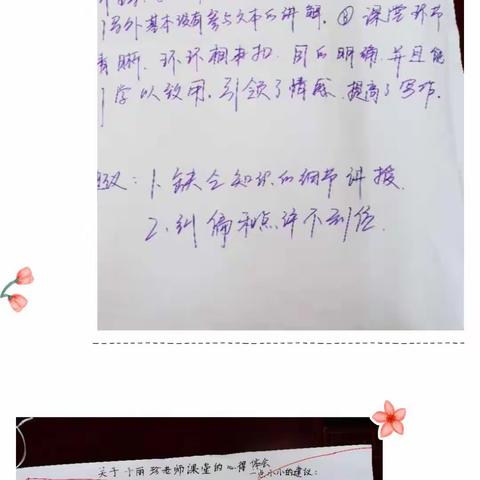 另外基本没有参与文本的讲解. ③ 课堂环节
清晰. 环环相扣. 目的明确. 并且能
学以致用. 引领了情感. 提高了写作.
议: 1. 缺乏知识的细节讲授.
2. 纠偏和点评不到位.
关于于丽玲老师课堂的心得体会
一点小小的建议: